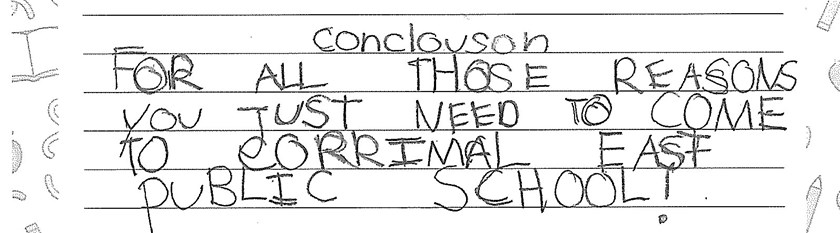 conclouson
FOR ALL THOSE REASONS
YOU JUST NEED TO COME
TO CORRIMAL EAST
PUBLIC SCHOOL!